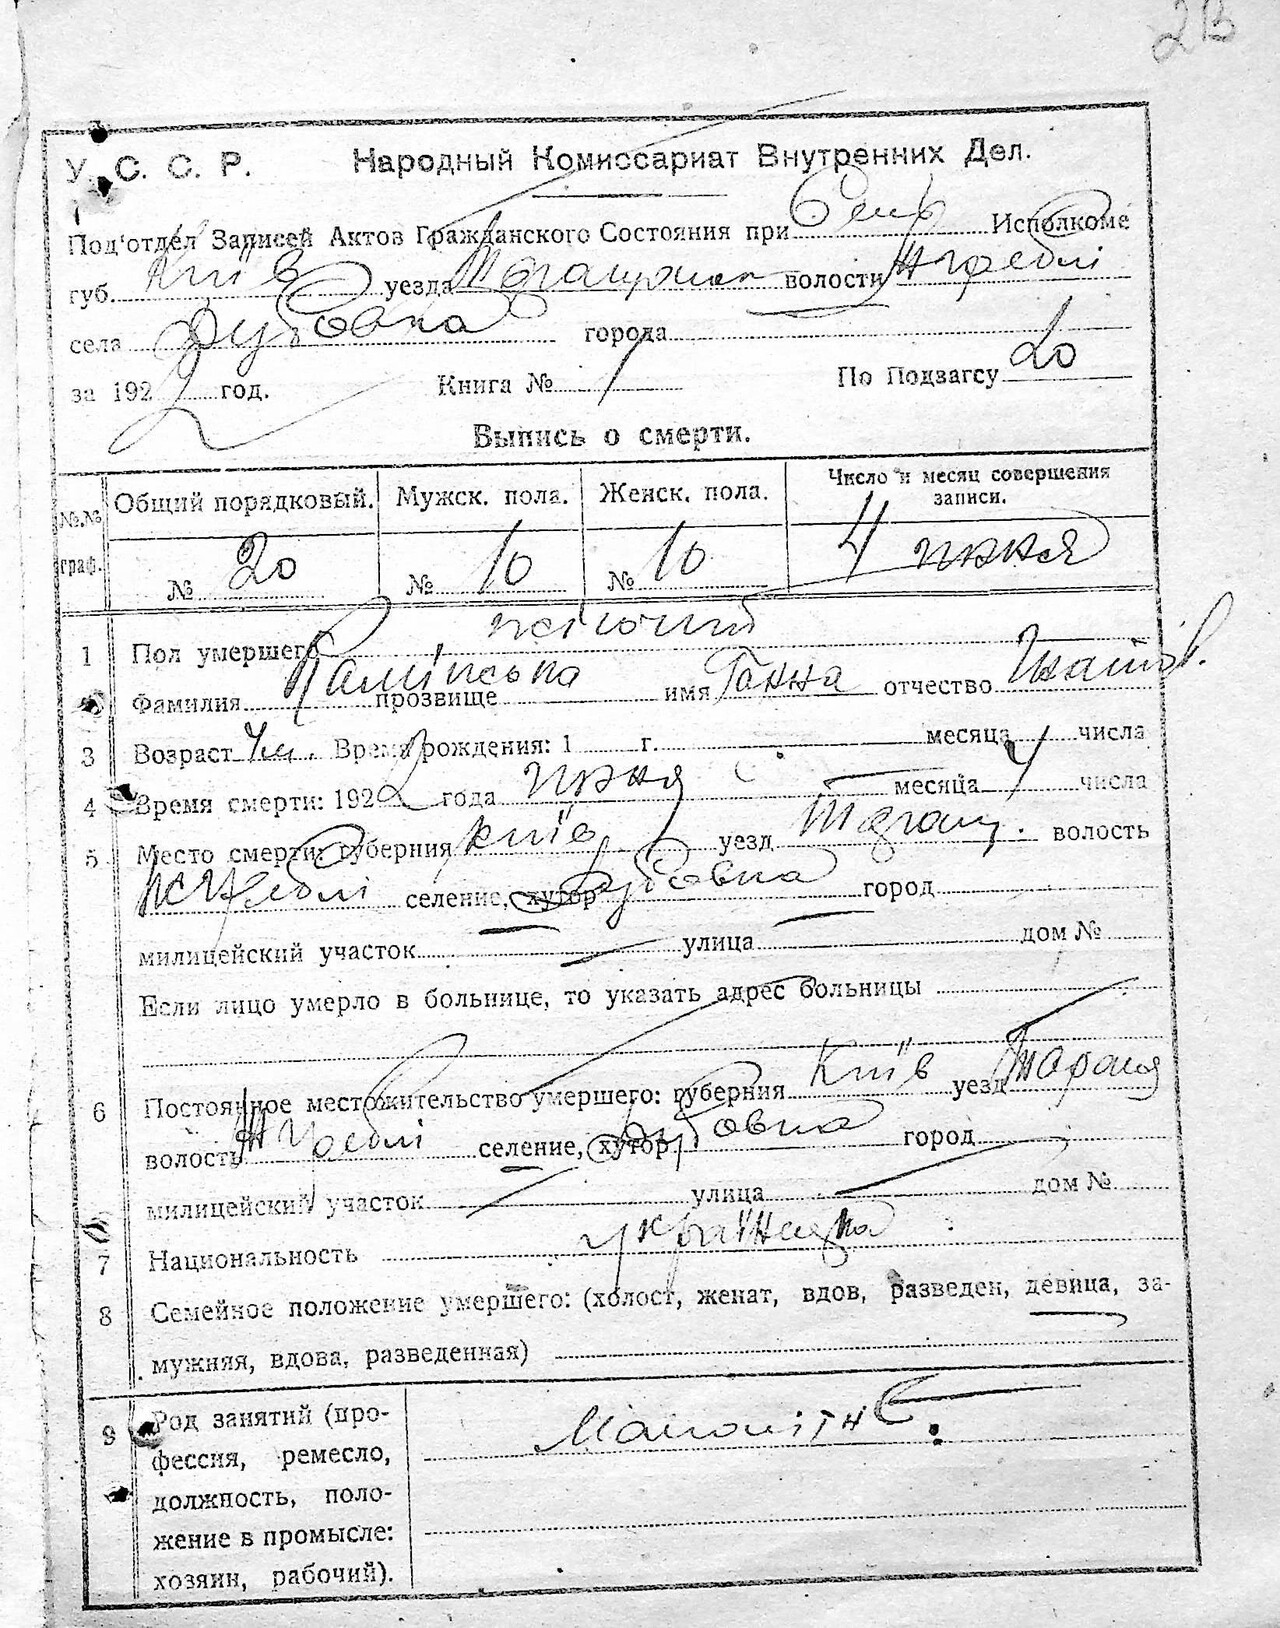 2В
У. С. С. Р. Народный Комиссариат Внутренних Дел.
Под'отдел Записей Актов Гражданского Состояния при Сель Исполкоме
губ. Київ уезда Таращанск волости Жгребл
села Дубовка города
за 1922 год. Книга № 1 По Подзагсу 20
Выпись о смерти.
№№ граф. Общий порядковый. Мужск. пола. Женск. пола. Число и месяц совершения записи.
№ 20 № 10 № 10 4 июня
1 Пол умершего жіночий
Фамилия Камінська прозвище имя Ганна отчество Гнатів.
3 Возраст 4 м. Время рождения: 1 г. месяца числа
4 Время смерти: 1922 года июня месяца 4 числа
5 Место смерти: губерния Київ уезд Таращ. волость
селение, хутор Дубовка город
милицейский участок улица дом №
Если лицо умерло в больнице, то указать адрес больницы
6 Постоянное местожительство умершего: губерния Київ уезд Тараща
волость селение, хутор Дубовка город
милицейский участок улица дом №
7 Национальность українка
8 Семейное положение умершего: (холост, женат, вдов, разведен, девица, за-
мужняя, вдова, разведенная)
9 Род занятий (про-
фессия, ремесло,
должность, поло-
жение в промысле:
хозяин, рабочий).
Малолітнє.